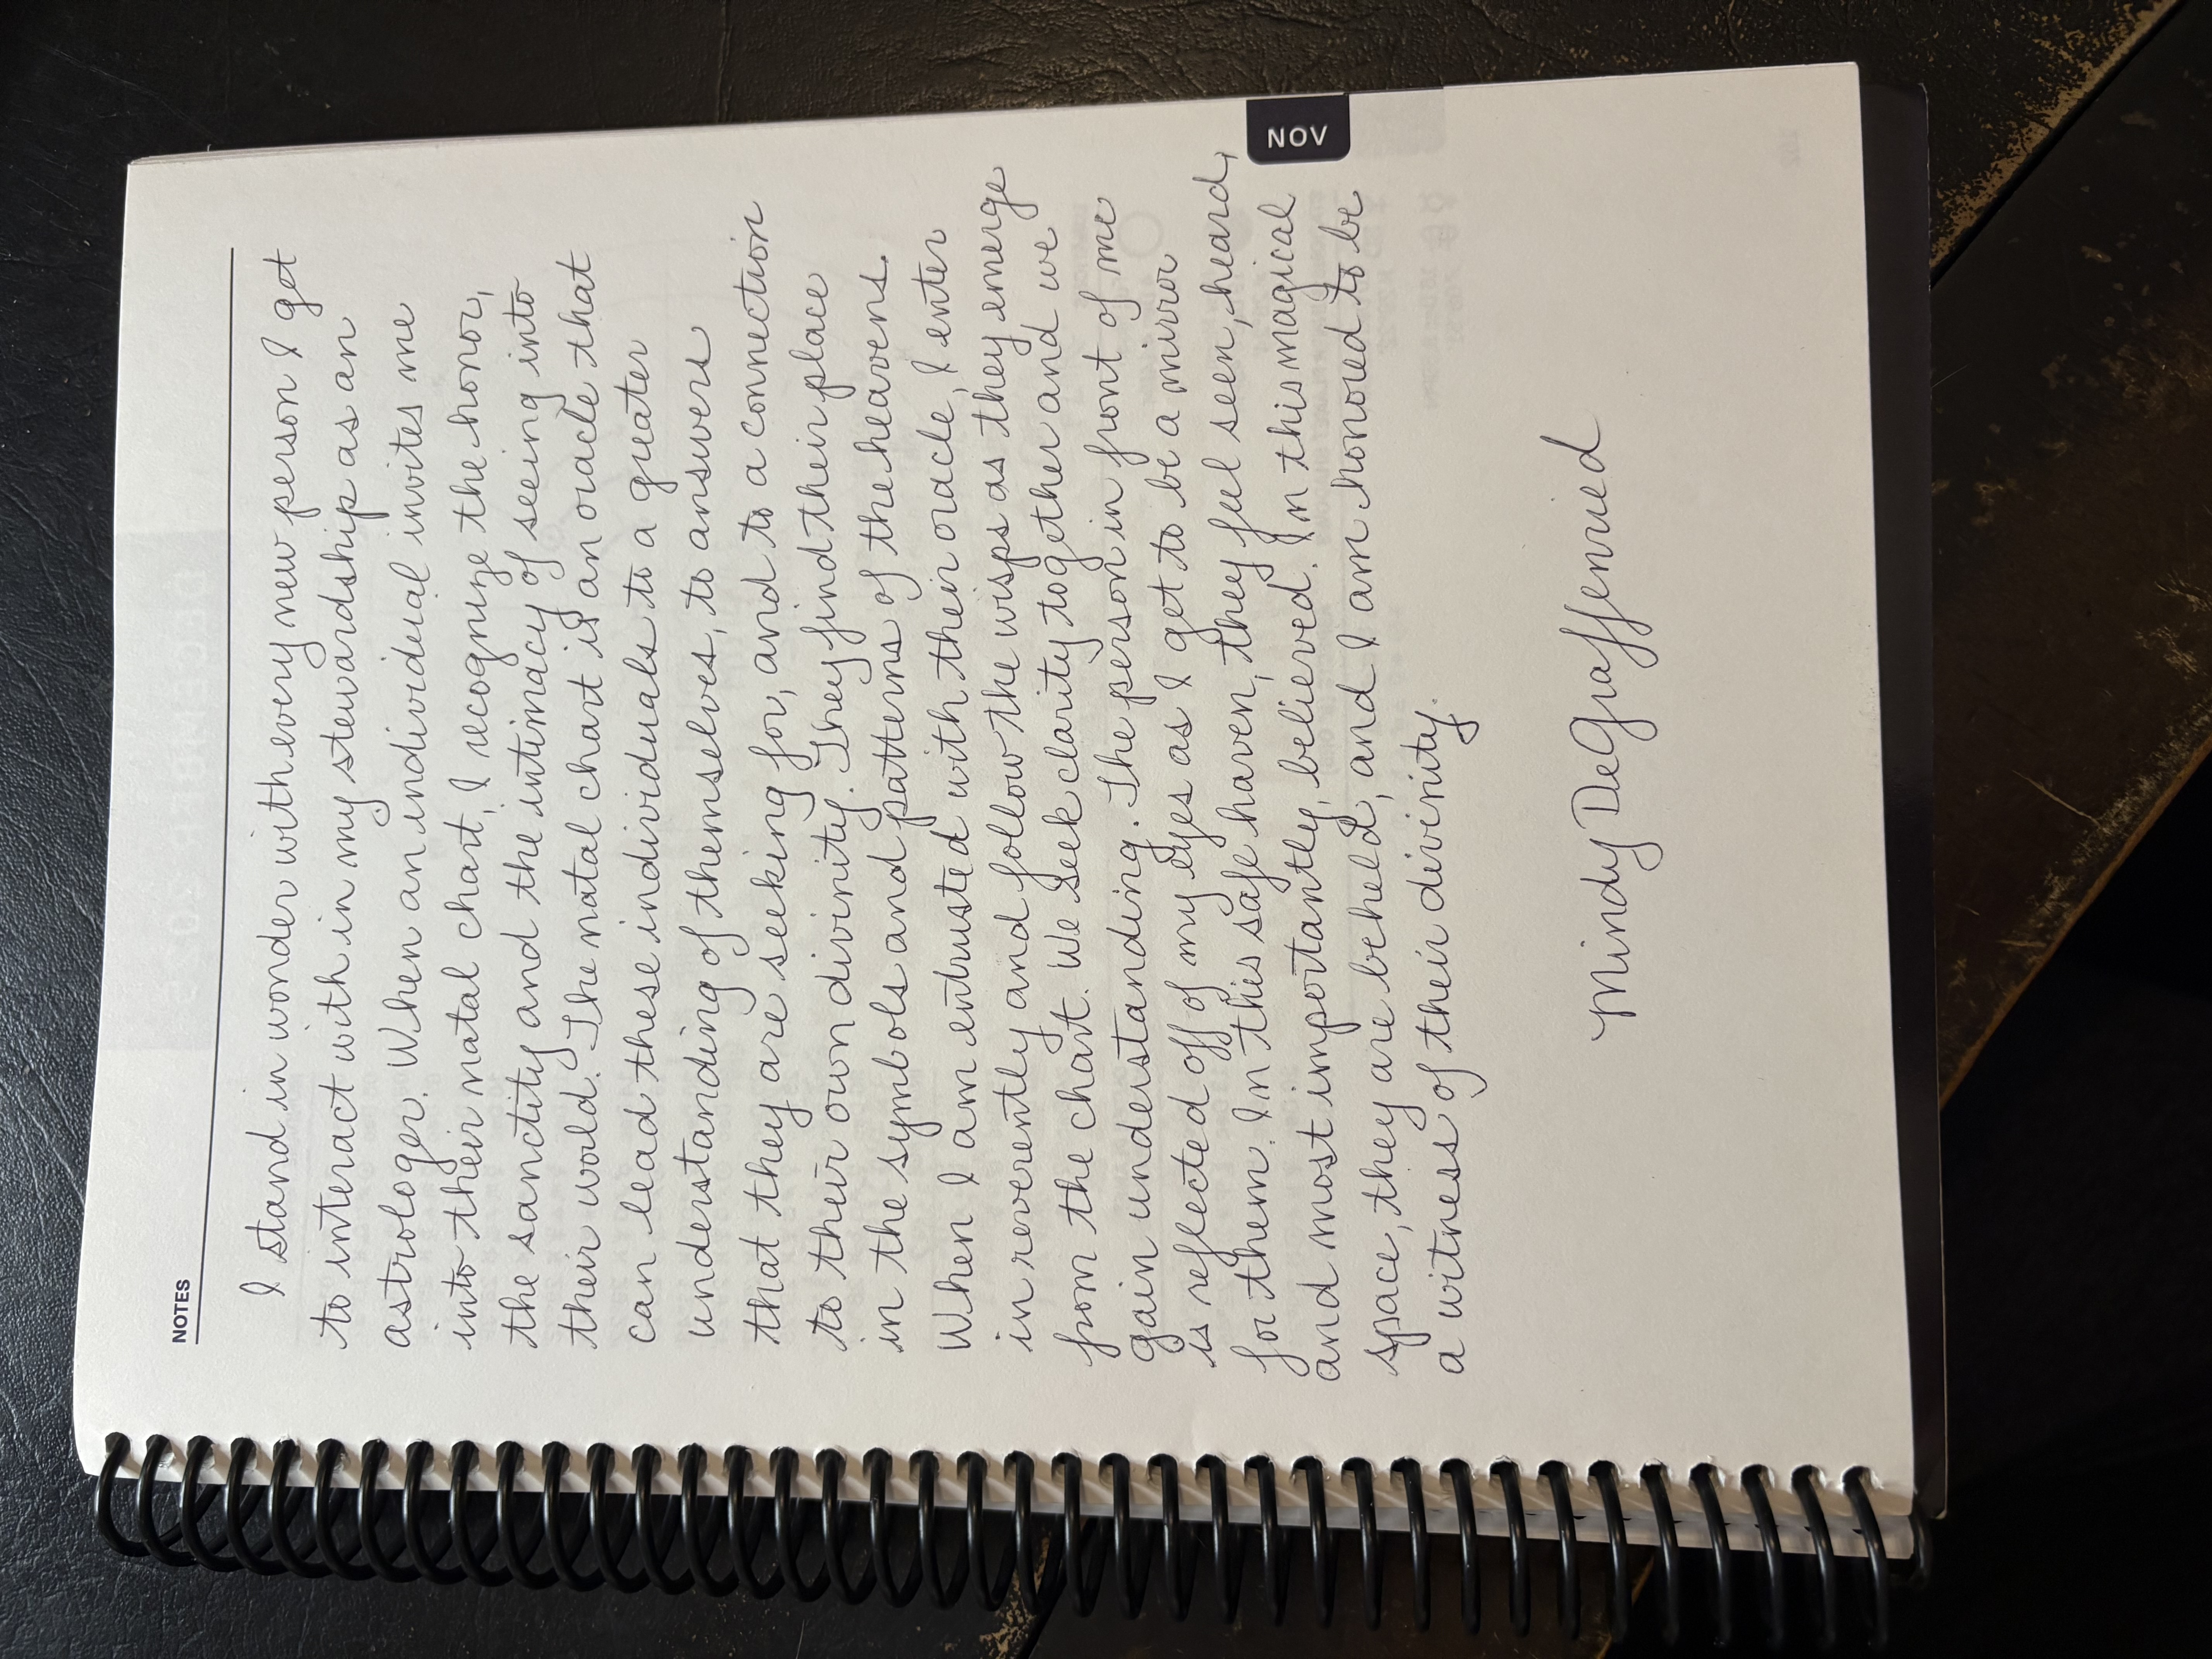 NOTES
I stand in wonder with every new person I get
to interact with in my stewardship as an
astrologer. When an individual invites me
into their natal chart, I recognize the honor,
the sanctity and the intimacy of seeing into
their world. The natal chart is an oracle that
can lead these individuals to a greater
understanding of themselves, to answers
that they are seeking for, and to a connection
to their own divinity. They find their place
in the symbols and patterns of the heavens.
When I am entrusted with their oracle, I enter
in reverently and follow the wisps as they emerge
from the chart. We seek clarity together and we
gain understanding. The person in front of me
is reflected off of my eyes as I get to be a mirror
for them. In this safe haven, they feel seen, heard,
and most importantly, believed. In this magical
space, they are beheld, and I am honored to be
a witness of their divinity.
Mindy DeGraffenried
NOV